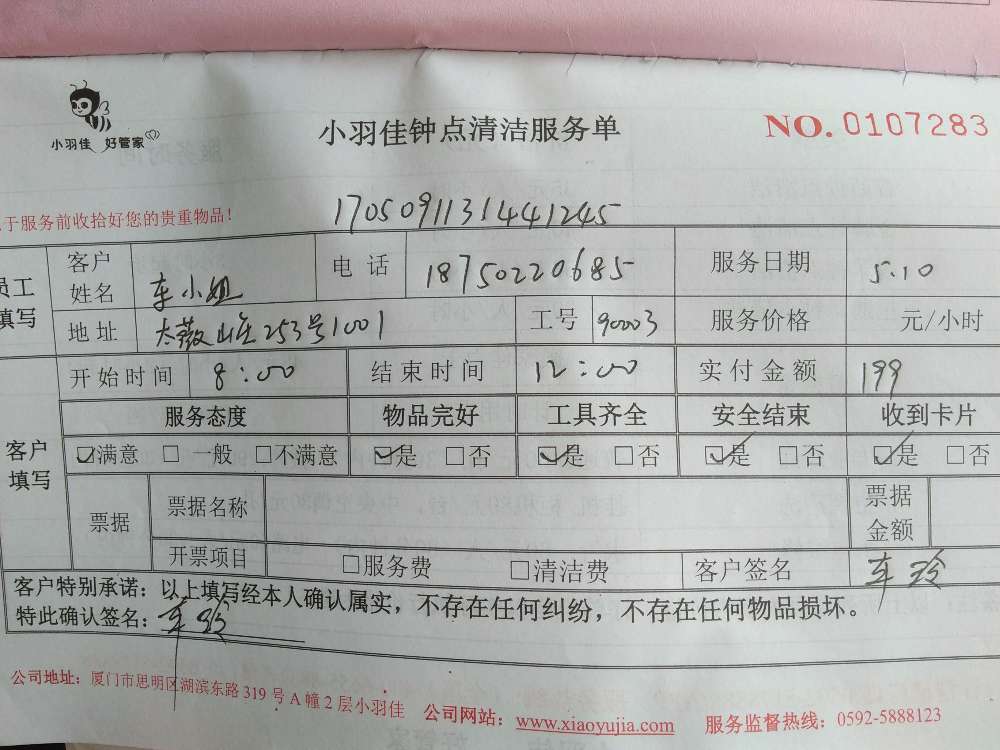 小羽佳 好管家
小羽佳钟点清洁服务单
NO. 0107283
于服务前收拾好您的贵重物品!
170509113144 1245
员工填写 客户姓名 车小姐 电话 18750220685 服务日期 5.10
地址 太薇山庄253号1001 工号 90003 服务价格 元/小时
客户填写 开始时间 8:00 结束时间 12:00 实付金额 199
服务态度 物品完好 工具齐全 安全结束 收到卡片
☑满意 □一般 □不满意 ☑是 □否 ☑是 □否 ☑是 □否 ☑是 □否
票据 票据名称 票据金额
开票项目 □服务费 □清洁费 客户签名 车玲
客户特别承诺：以上填写经本人确认属实，不存在任何纠纷，不存在任何物品损坏。
特此确认签名：车玲
公司地址：厦门市思明区湖滨东路319号A幢2层小羽佳 公司网站：www.xiaoyujia.com 服务监督热线：0592-5888123